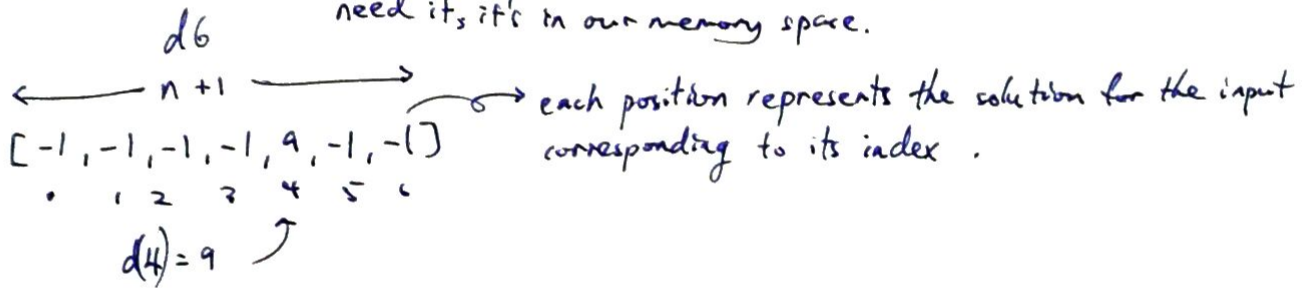 need it, it's in our memory space.
d6
n + 1
each position represents the solution for the input
[-1, -1, -1, -1, 9, -1, -1]
corresponding to its index .
0 1 2 3 4 5 6
d(4) = 9